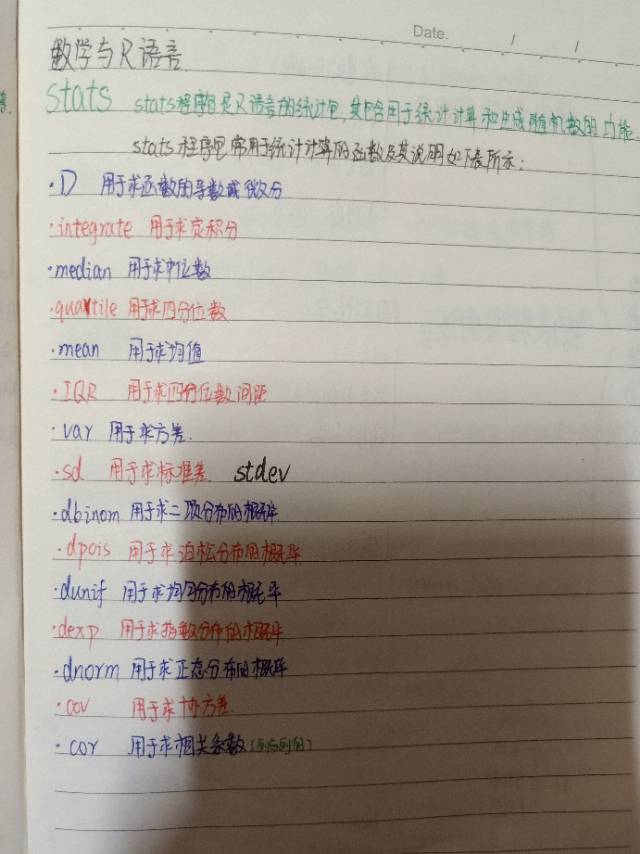 Date. / /
数学与R语言
stats stats程序包是R语言的统计包,其包含用于统计计算和生成随机数的功能.
stats程序包常用于统计计算的函数及其说明如下表所示:
·D 用于求函数的导数或微分
·integrate 用于求定积分
·median 用于求中位数
·quartile 用于求四分位数
·mean 用于求均值
·IQR 用于求四分位数间距
·var 用于求方差.
·sd 用于求标准差. stdev
·dbinom 用于求二项分布的概率
·dpois 用于求泊松分布的概率
·dunif 用于求均匀分布的概率
·dexp 用于求指数分布的概率
·dnorm 用于求正态分布的概率
·cov 用于求协方差
·cor 用于求相关系数